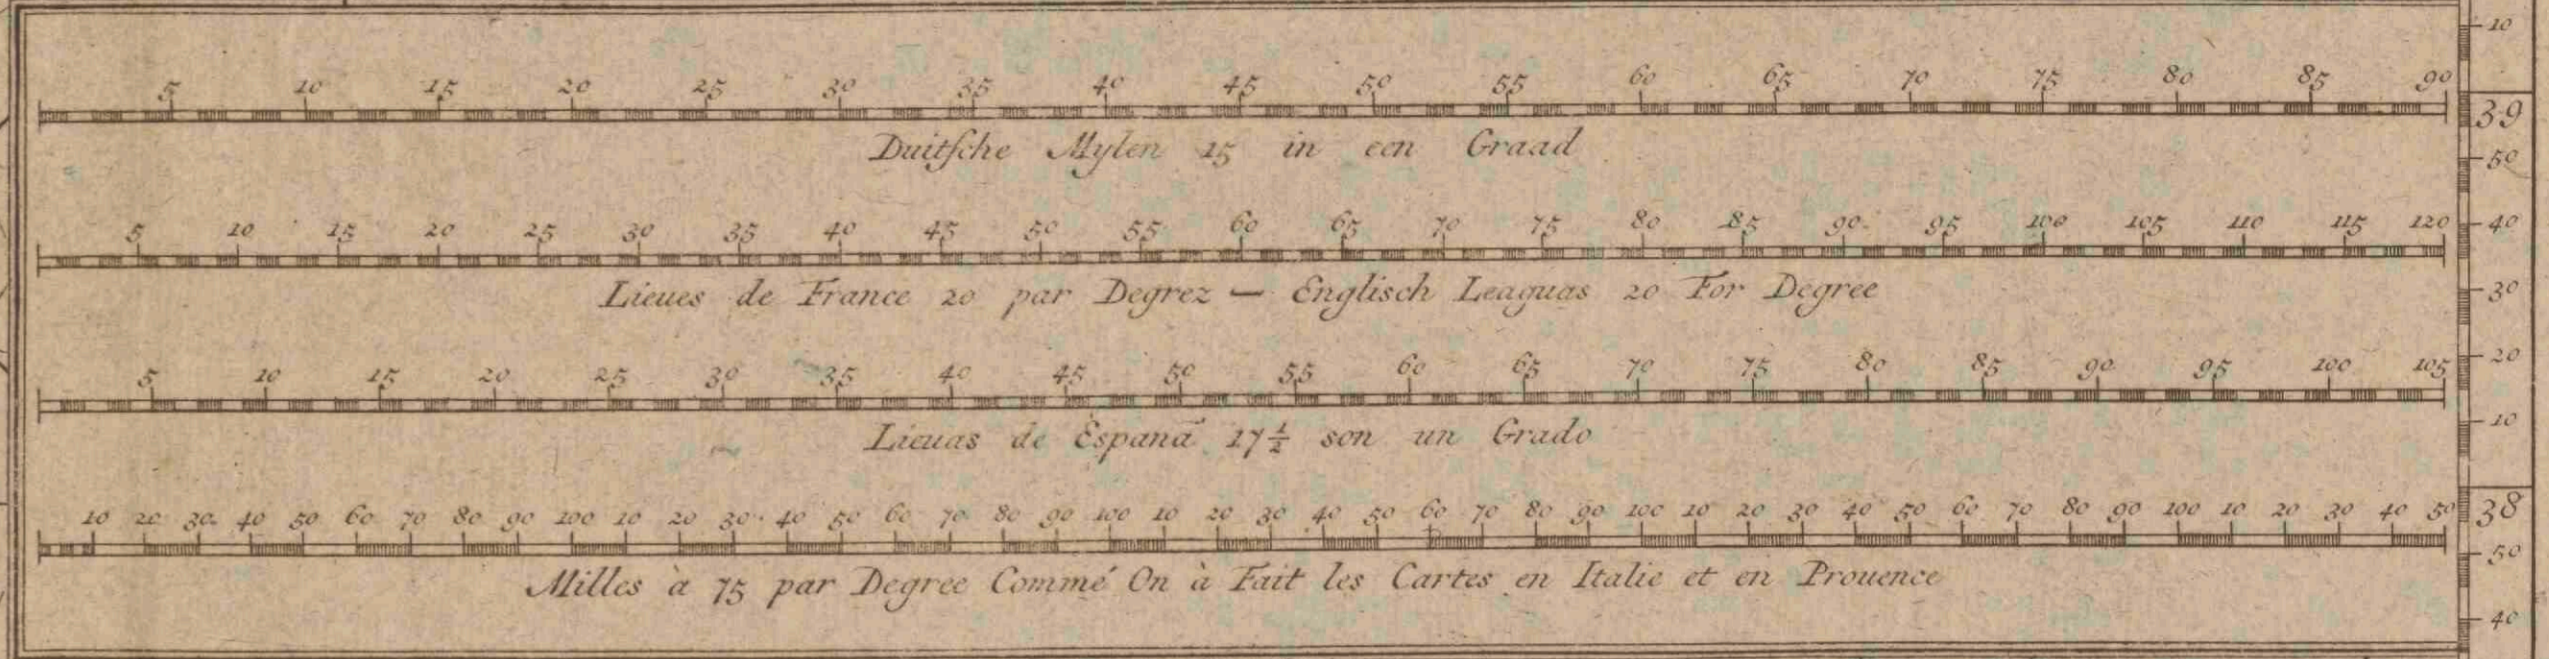 5 10 15 20 25 30 35 40 45 50 55 60 65 70 75 80 85 90
Duitsche Mylen 15 in een Graad
5 10 15 20 25 30 35 40 45 50 55 60 65 70 75 80 85 90 95 100 105 110 115 120
Lieues de France 20 par Degrez — Englisch Leaguas 20 For Degree
5 10 15 20 25 30 35 40 45 50 55 60 65 70 75 80 85 90 95 100 105
Lieuas de Espanā 17½ son un Grado
10 20 30 40 50 60 70 80 90 100 10 20 30 40 50 60 70 80 90 100 10 20 30 40 50 60 70 80 90 100 10 20 30 40 50 60 70 80 90 100 10 20 30 40 50
Milles à 75 par Degree Commé On à Fait les Cartes en Italie et en Prouence
10
39
50
40
30
20
10
38
50
40